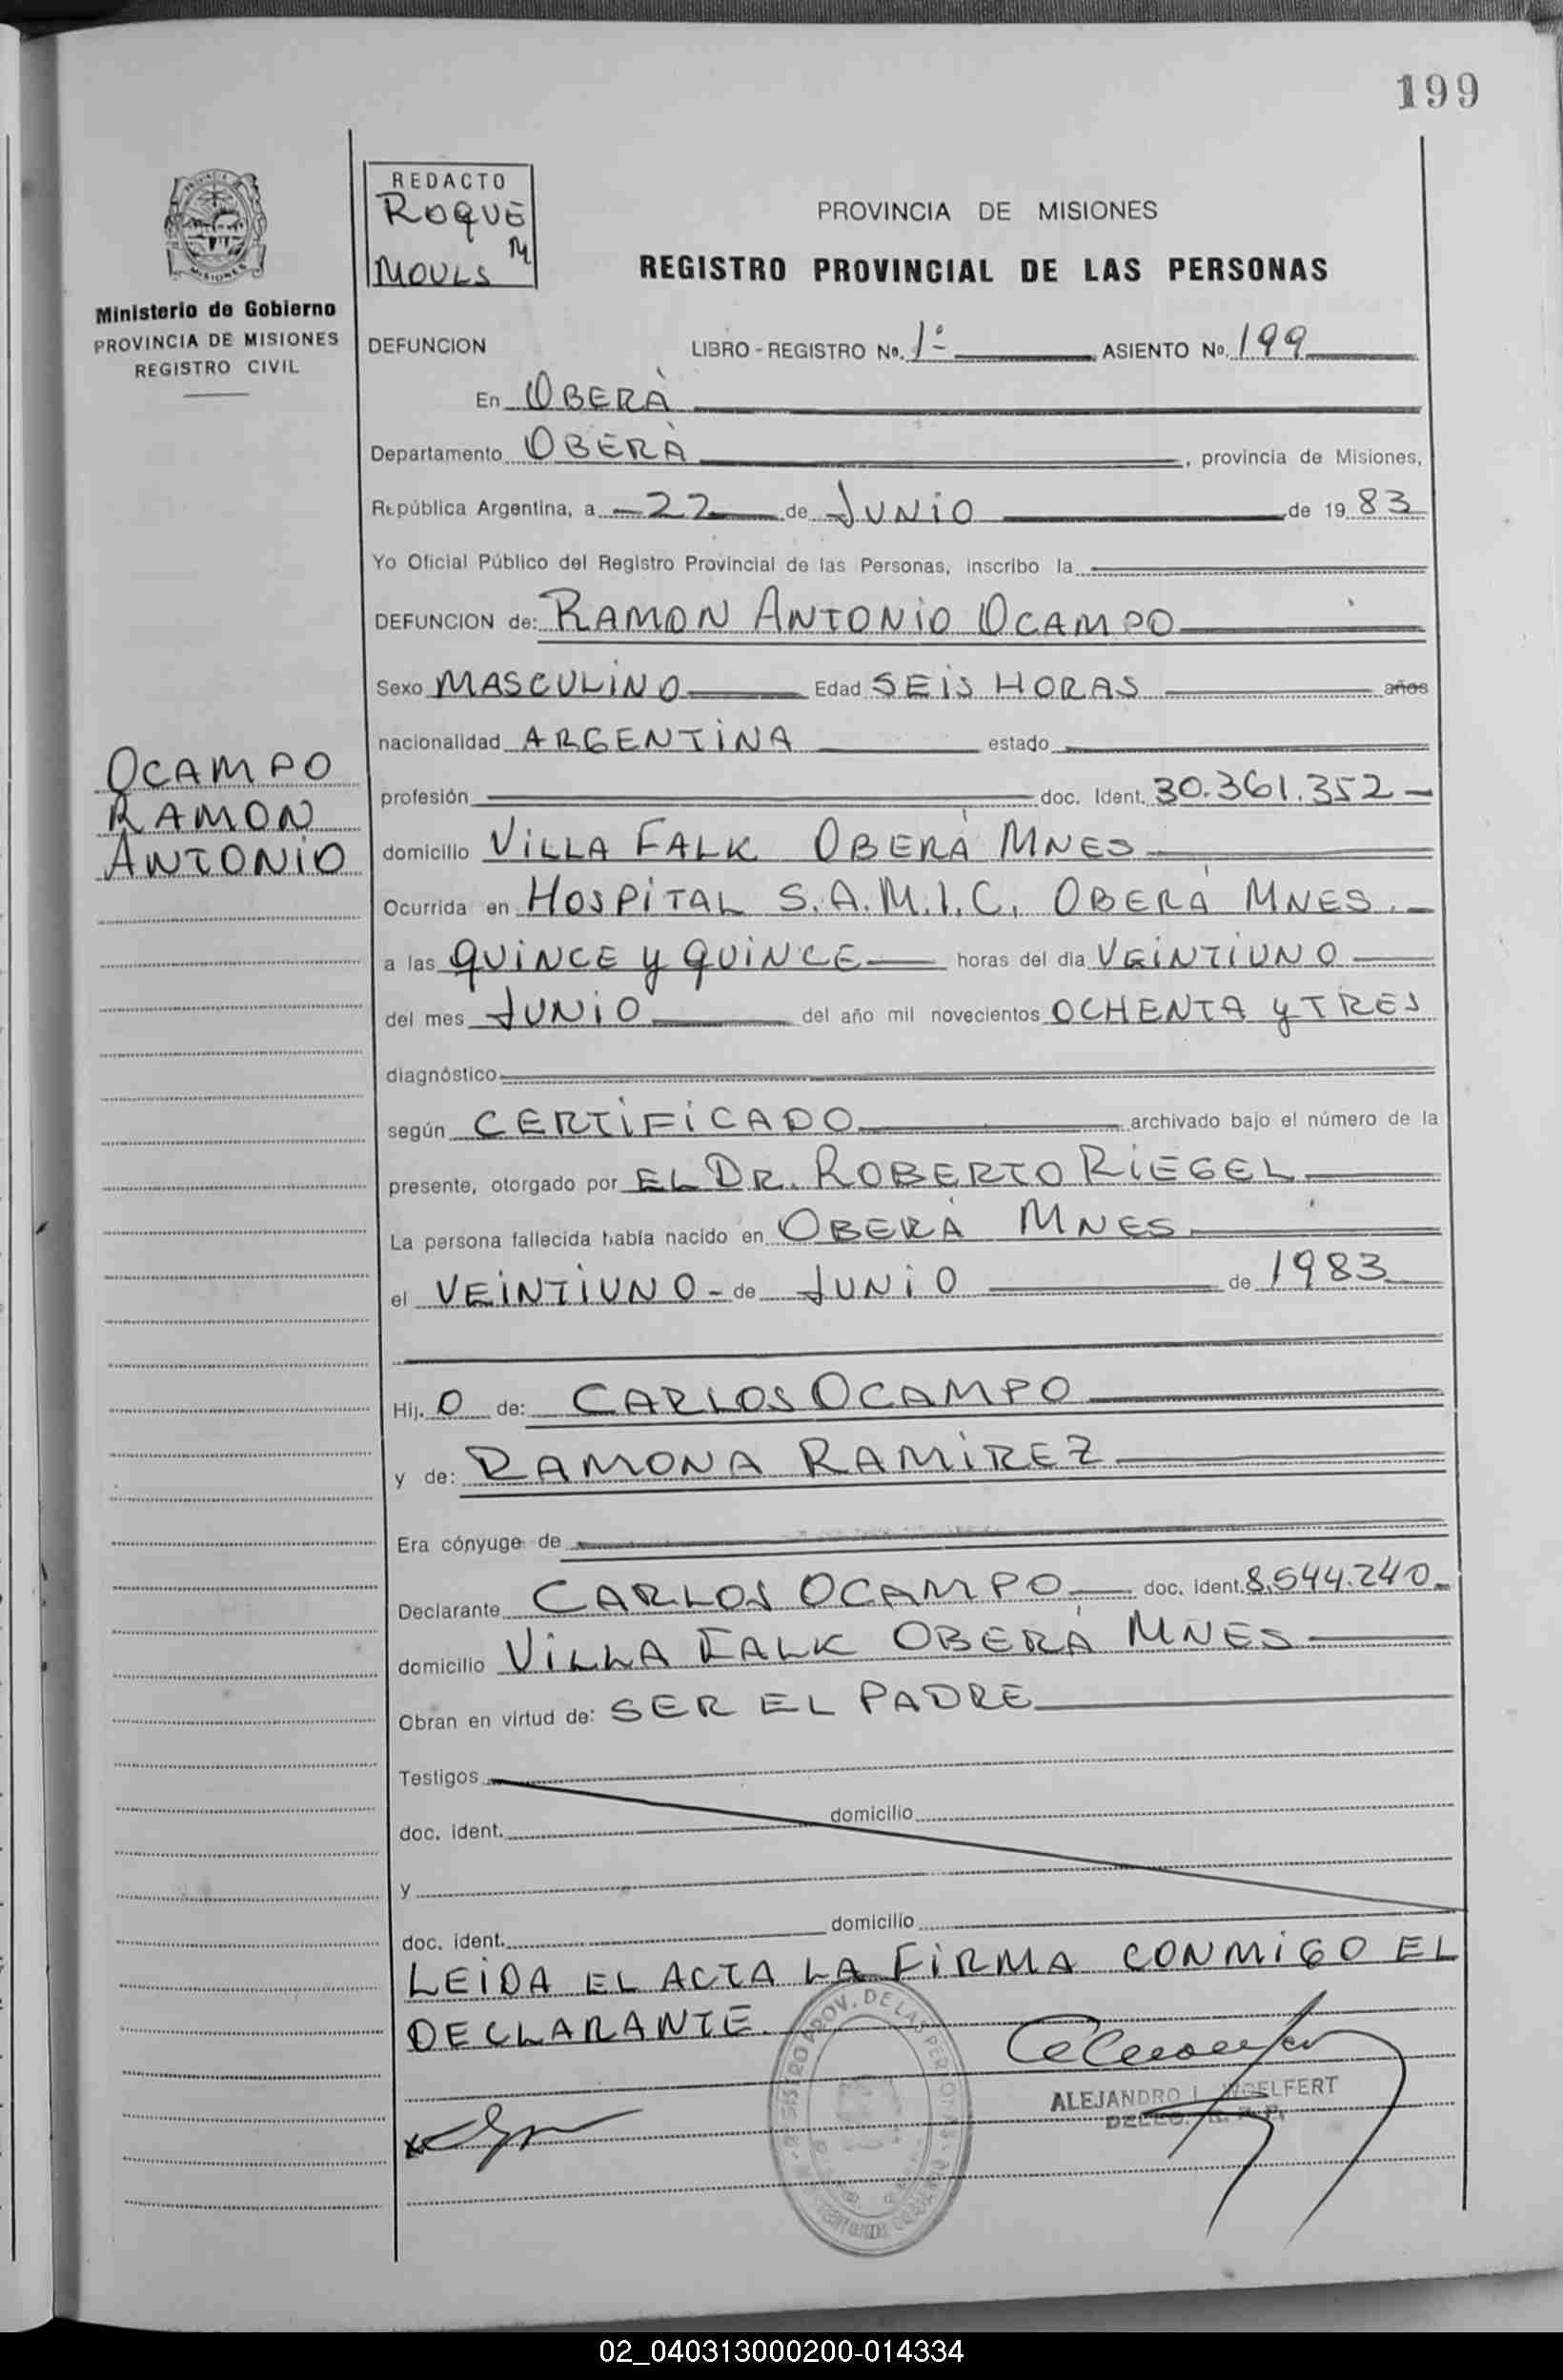 199
REDACTO
ROQUE
M
MOULS
PROVINCIA DE MISIONES
REGISTRO PROVINCIAL DE LAS PERSONAS
Ministerio de Gobierno
PROVINCIA DE MISIONES
REGISTRO CIVIL
DEFUNCION LIBRO - REGISTRO No. 1º ASIENTO No. 199
En OBERÀ
Departamento OBERÀ, provincia de Misiones,
República Argentina, a - 22 de JUNIO de 1983
Yo Oficial Público del Registro Provincial de las Personas, inscribo la
DEFUNCION de: RAMON ANTONIO OCAMPO
Sexo MASCULINO Edad SEIS HORAS años
nacionalidad ARGENTINA estado
OCAMPO
RAMON
ANTONIO
profesión doc. Ident. 30.361.352 -
domicilio VILLA FALK OBERÁ MNES
Ocurrida en HOSPITAL S.A.M.I.C. OBERÁ MNES. -
a las QUINCE y QUINCE horas del dia VEINTIUNO
del mes JUNIO del año mil novecientos OCHENTA y TRES
diagnóstico
según CERTIFICADO archivado bajo el número de la
presente, otorgado por EL DR. ROBERTO RIEGEL
La persona fallecida había nacido en OBERÁ MNES
el VEINTIUNO - de JUNIO de 1983
Hij. O de: CARLOS OCAMPO
y de: RAMONA RAMIREZ
Era cónyuge de
Declarante CARLOS OCAMPO doc. ident. 8.544.240
domicilio VILLA FALK OBERÁ MNES
Obran en virtud de: SER EL PADRE
Testigos
doc. ident. domicilio
y
doc. ident. domicilio
LEIDA EL ACTA LA FIRMA CONMIGO EL
DECLARANTE.
REGISTRO PROV. DE LAS PERSONAS
ALEJANDRO L. WOELFERT
02_040313000200-014334